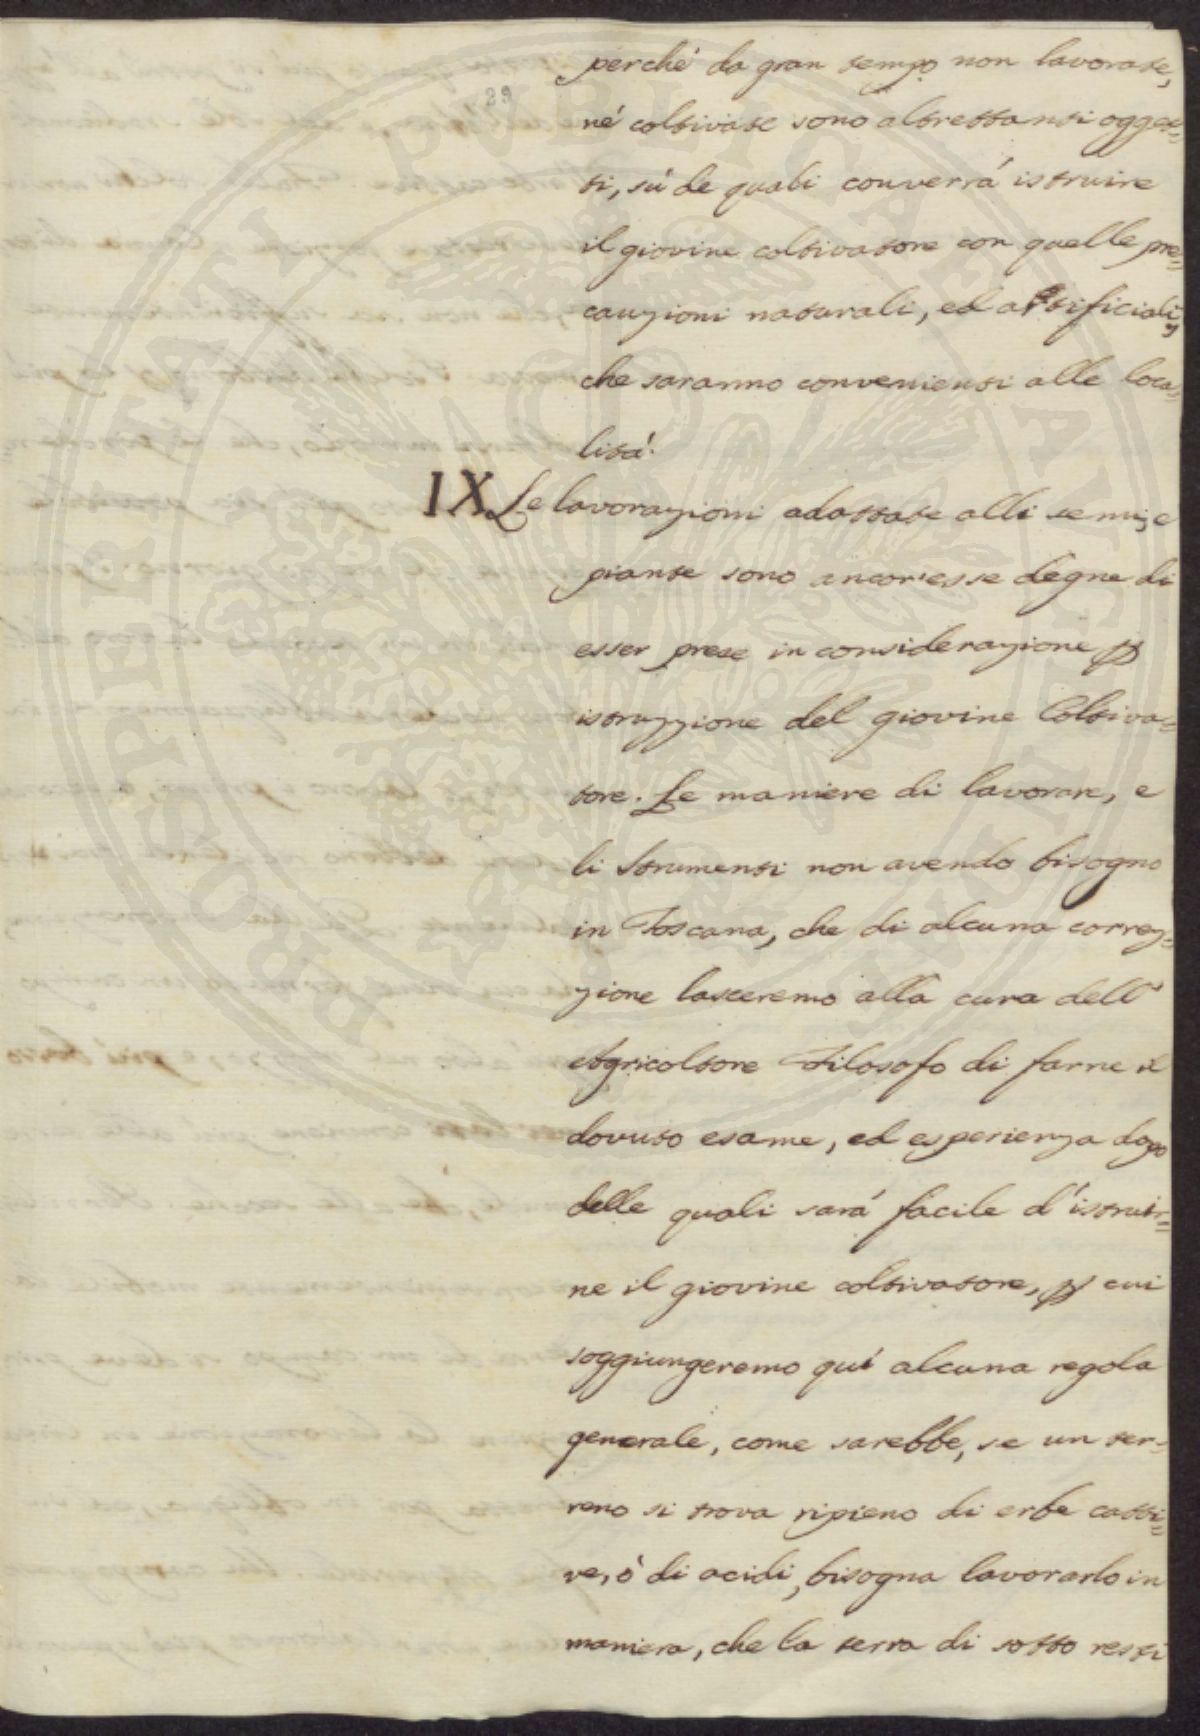 29
perché da gran tempo non lavorate,
né coltivate sono altrettanti ogget=
ti, sú de quali converrá istruire
il giovine coltivatore con quelle pre=
cauzioni naturali, ed artificiali,
che saranno convenienti alle loca=
litá.
IX Le lavorazioni adattate alli semi, e
piante sono ancor'esse degne di
esser prese in considerazione p
istruzzione del giovine Coltiva=
tore. Le maniere di lavorare, e
li Strumenti non avendo bisogno
in Toscana, che di alcuna correz=
zione lasceremo alla cura dell'
Agricoltore Filosofo di farne il
dovuto esame, ed esperienza dopo
delle quali sará facile d'istruir=
ne il giovine coltivatore, p cui
soggiungeremo quí alcuna regola
generale, come sarebbe, se un ter=
reno si trova ripieno di erbe catti=
ve, ò di acidi, bisogna lavorarlo in
maniera, che la terra di sotto resti
PROSPERITATI PVBLICAE AVGENDAE